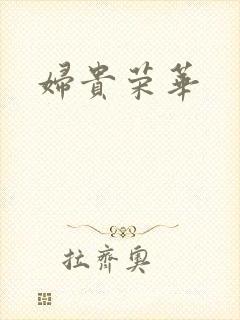 婦貴荣華
拉齊奧